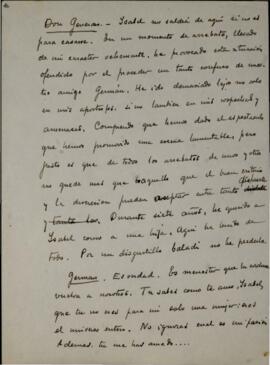 Don Genaro. — Isabel no saldrá de aquí si no es
para casarse. En un momento de arrebato, llevado
de mi carácter vehemente, he provocado esta situación
ofendido por el proceder un tanto confuso de nues-
tro amigo Germán. He sido demasiado lejos no solo
en mis apóstrofes si no tambien en mis sospechas y
amenazas. Comprendo que hemos dado el espectáculo
que hemos promovido una escena lamentable, pero
justo es que de todos los arrebatos de unos y otros
no quede mas que aquello que el buen criterio
y la discrecion puedan aceptar
Durante siete años, he querido a
Isabel como a una hija. Aquí ha tenido de
todo. Por un disgustillo baladí no he de perderla
German. Es verdad. Es menester que la cordura
vuelva a nosotros. Tu sabes como te amo, Isabel,
que tu no eres para mi solo una mujer: eres
el universo entero. No ignoras cual es mi pasión
Ademas, tu me has amado....